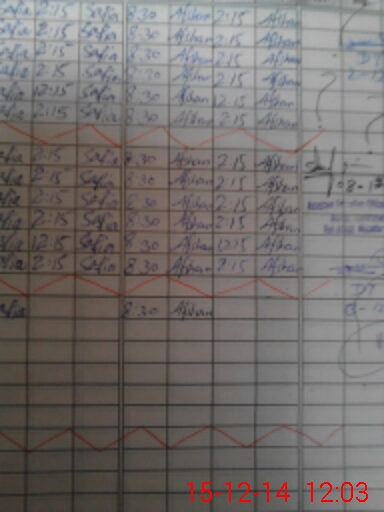 Safia 2:15 Safia 8:30 Afshan 2:15 Afshan
Safia 2:15 Safia 8:30 Afshan 2:15 Afshan
Safia 2:15 Safia 8:30 Afshan 2:15 Afshan
Safia 2:15 Safia 8:30 Afshan 2:15 Afshan
Safia 12:15 Safia 8:30 Afshan 12:15 Afshan
Safia 2:15 Safia 8:30 Afshan 2:15 Afshan
Safia 2:15 Safia 8:30 Afshan 2:15 Afshan
Safia 2:15 Safia 8:30 Afshan 2:15 Afshan
Safia 2:15 Safia 8:30 Afshan 2:15 Afshan
Safia 2:15 Safia 8:30 Afshan 2:15 Afshan
Safia 12:15 Safia 8:30 Afshan 12:15 Afshan
Safia 2:15 Safia 8:30 Afshan 2:15 Afshan
Safia 8:30 Afshan
15-12-14 12:03